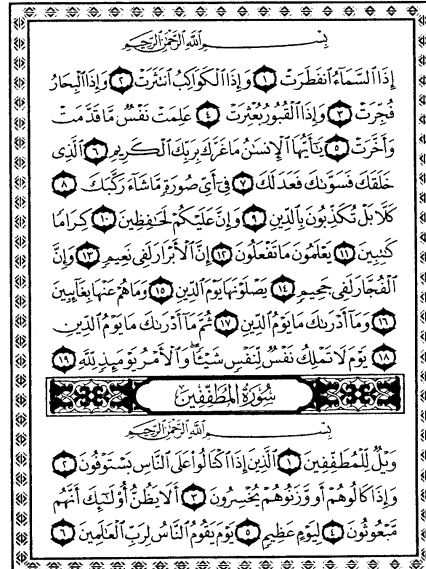 بِسْمِ اللَّهِ الرَّحْمَٰنِ الرَّحِيمِ
إِذَا السَّمَاءُ انفَطَرَتْ ١ وَإِذَا الْكَوَاكِبُ انتَثَرَتْ ٢ وَإِذَا الْبِحَارُ
فُجِّرَتْ ٣ وَإِذَا الْقُبُورُ بُعْثِرَتْ ٤ عَلِمَتْ نَفْسٌ مَّا قَدَّمَتْ
وَأَخَّرَتْ ٥ يَٰأَيُّهَا الْإِنسَٰنُ مَا غَرَّكَ بِرَبِّكَ الْكَرِيمِ ٦ الَّذِي
خَلَقَكَ فَسَوَّىٰكَ فَعَدَلَكَ ٧ فِي أَيِّ صُورَةٍ مَّا شَاءَ رَكَّبَكَ ٨
كَلَّا بَلْ تُكَذِّبُونَ بِالدِّينِ ٩ وَإِنَّ عَلَيْكُمْ لَحَٰفِظِينَ ١٠ كِرَامًا
كَٰتِبِينَ ١١ يَعْلَمُونَ مَا تَفْعَلُونَ ١٢ إِنَّ الْأَبْرَارَ لَفِي نَعِيمٍ ١٣ وَإِنَّ
الْفُجَّارَ لَفِي جَحِيمٍ ١٤ يَصْلَوْنَهَا يَوْمَ الدِّينِ ١٥ وَمَا هُمْ عَنْهَا بِغَائِبِينَ
١٦ وَمَا أَدْرَىٰكَ مَا يَوْمُ الدِّينِ ١٧ ثُمَّ مَا أَدْرَىٰكَ مَا يَوْمُ الدِّينِ
١٨ يَوْمَ لَا تَمْلِكُ نَفْسٌ لِّنَفْسٍ شَيْئًا وَالْأَمْرُ يَوْمَئِذٍ لِّلَّهِ ١٩
سُورَةُ الْمُطَفِّفِينَ
بِسْمِ اللَّهِ الرَّحْمَٰنِ الرَّحِيمِ
وَيْلٌ لِّلْمُطَفِّفِينَ ١ الَّذِينَ إِذَا اكْتَالُوا عَلَى النَّاسِ يَسْتَوْفُونَ ٢
وَإِذَا كَالُوهُمْ أَو وَّزَنُوهُمْ يُخْسِرُونَ ٣ أَلَا يَظُنُّ أُولَٰئِكَ أَنَّهُم
مَّبْعُوثُونَ ٤ لِيَوْمٍ عَظِيمٍ ٥ يَوْمَ يَقُومُ النَّاسُ لِرَبِّ الْعَٰلَمِينَ ٦